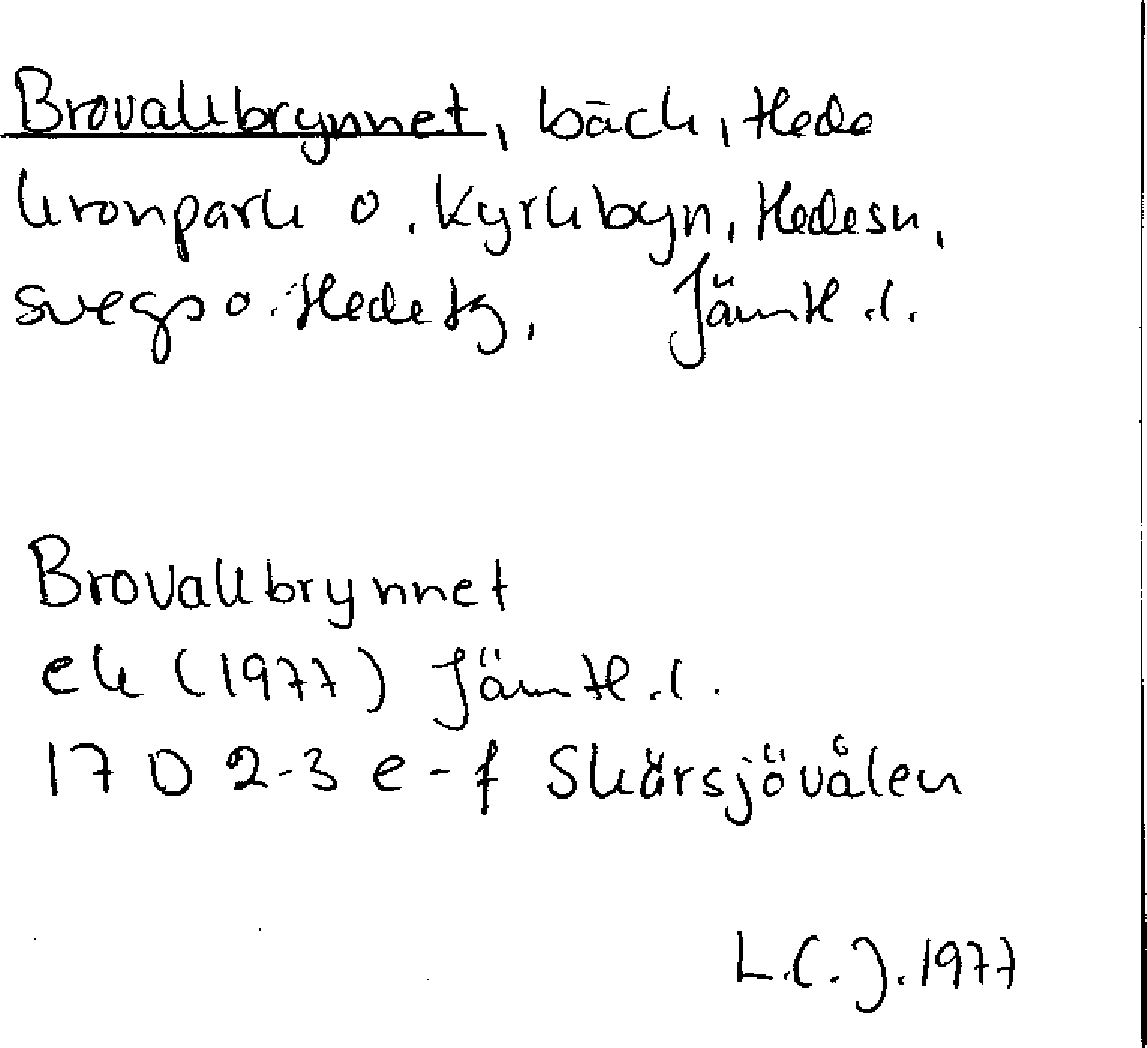 Brovallbrynnet, bäck, Hede
kronpark o. Kyrkbyn, Hedesn,
Svegs o. Hede tg, Jämtl.l.
Brovallbrynnet
ek (1977) Jämtl.l.
17 D 2-3 e-f Skärsjövålen
L.C.J. 1977